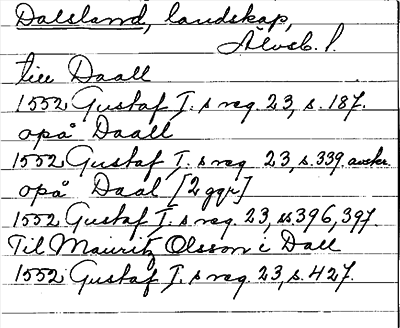 Dalsland, landskap,
Älvsb. l.
till Daall
1552 Gustaf I. s reg. 23, s. 187.
opå Daall
1552 Gustaf I. s reg. 23, s. 339. avskr.
opå Daal [2 ggr]
1552 Gustaf I. s reg. 23, ss 396, 397.
Til Mauritz Olsson i Dall
1552 Gustaf I. s reg. 23, s. 427.